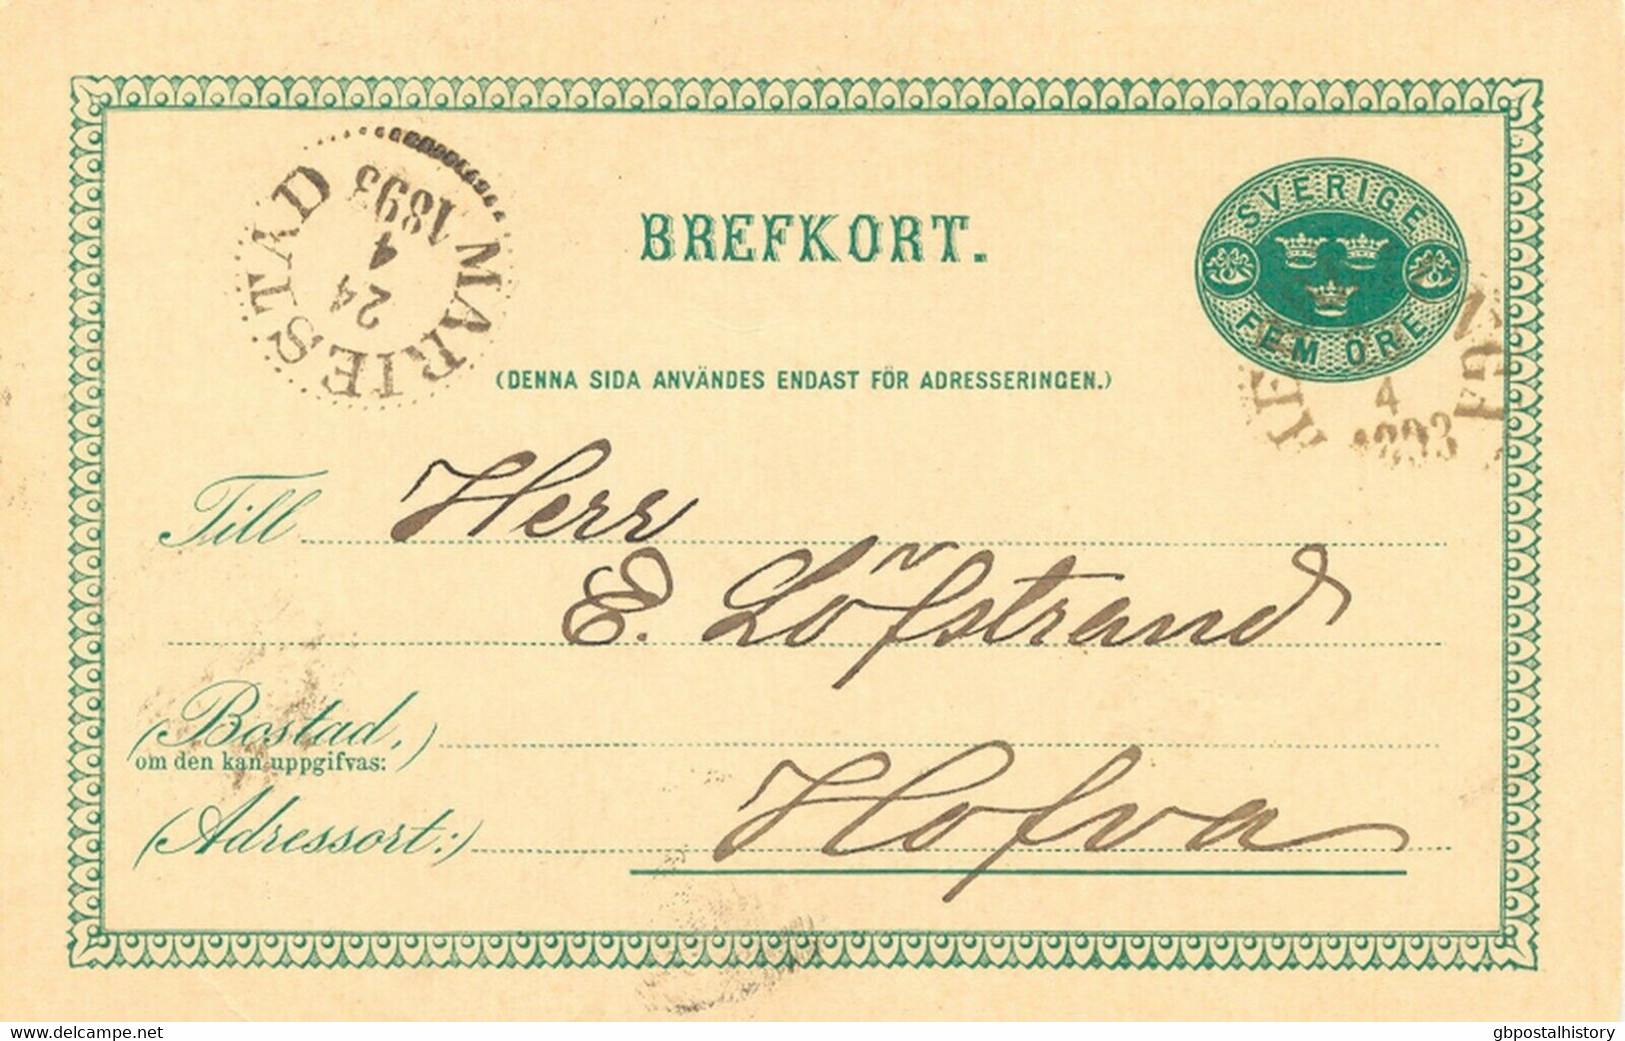 MARIESTAD
24
4
1893
BREFKORT.
SVERIGE
FEM ÖRE
4
1893
(DENNA SIDA ANVÄNDES ENDAST FÖR ADRESSERINGEN.)
Till Herr
E. Löfstrand
(Bostad,)
om den kan uppgifvas:
(Adressort:) Hofva
delcampe.net
gbpostalhistory